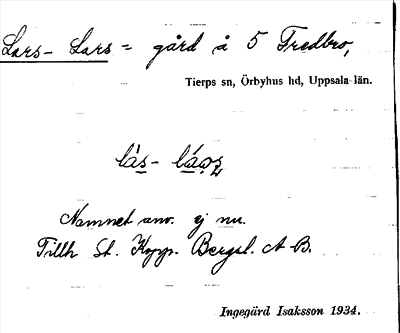 Lars-Lars = gård å 5 Fredbro,
Tierps sn, Örbyhus hd, Uppsala län.
Namnet anv. ej nu.
Tillh St. Kopp. Bergsl. A-B.
Ingegärd Isaksson 1934.